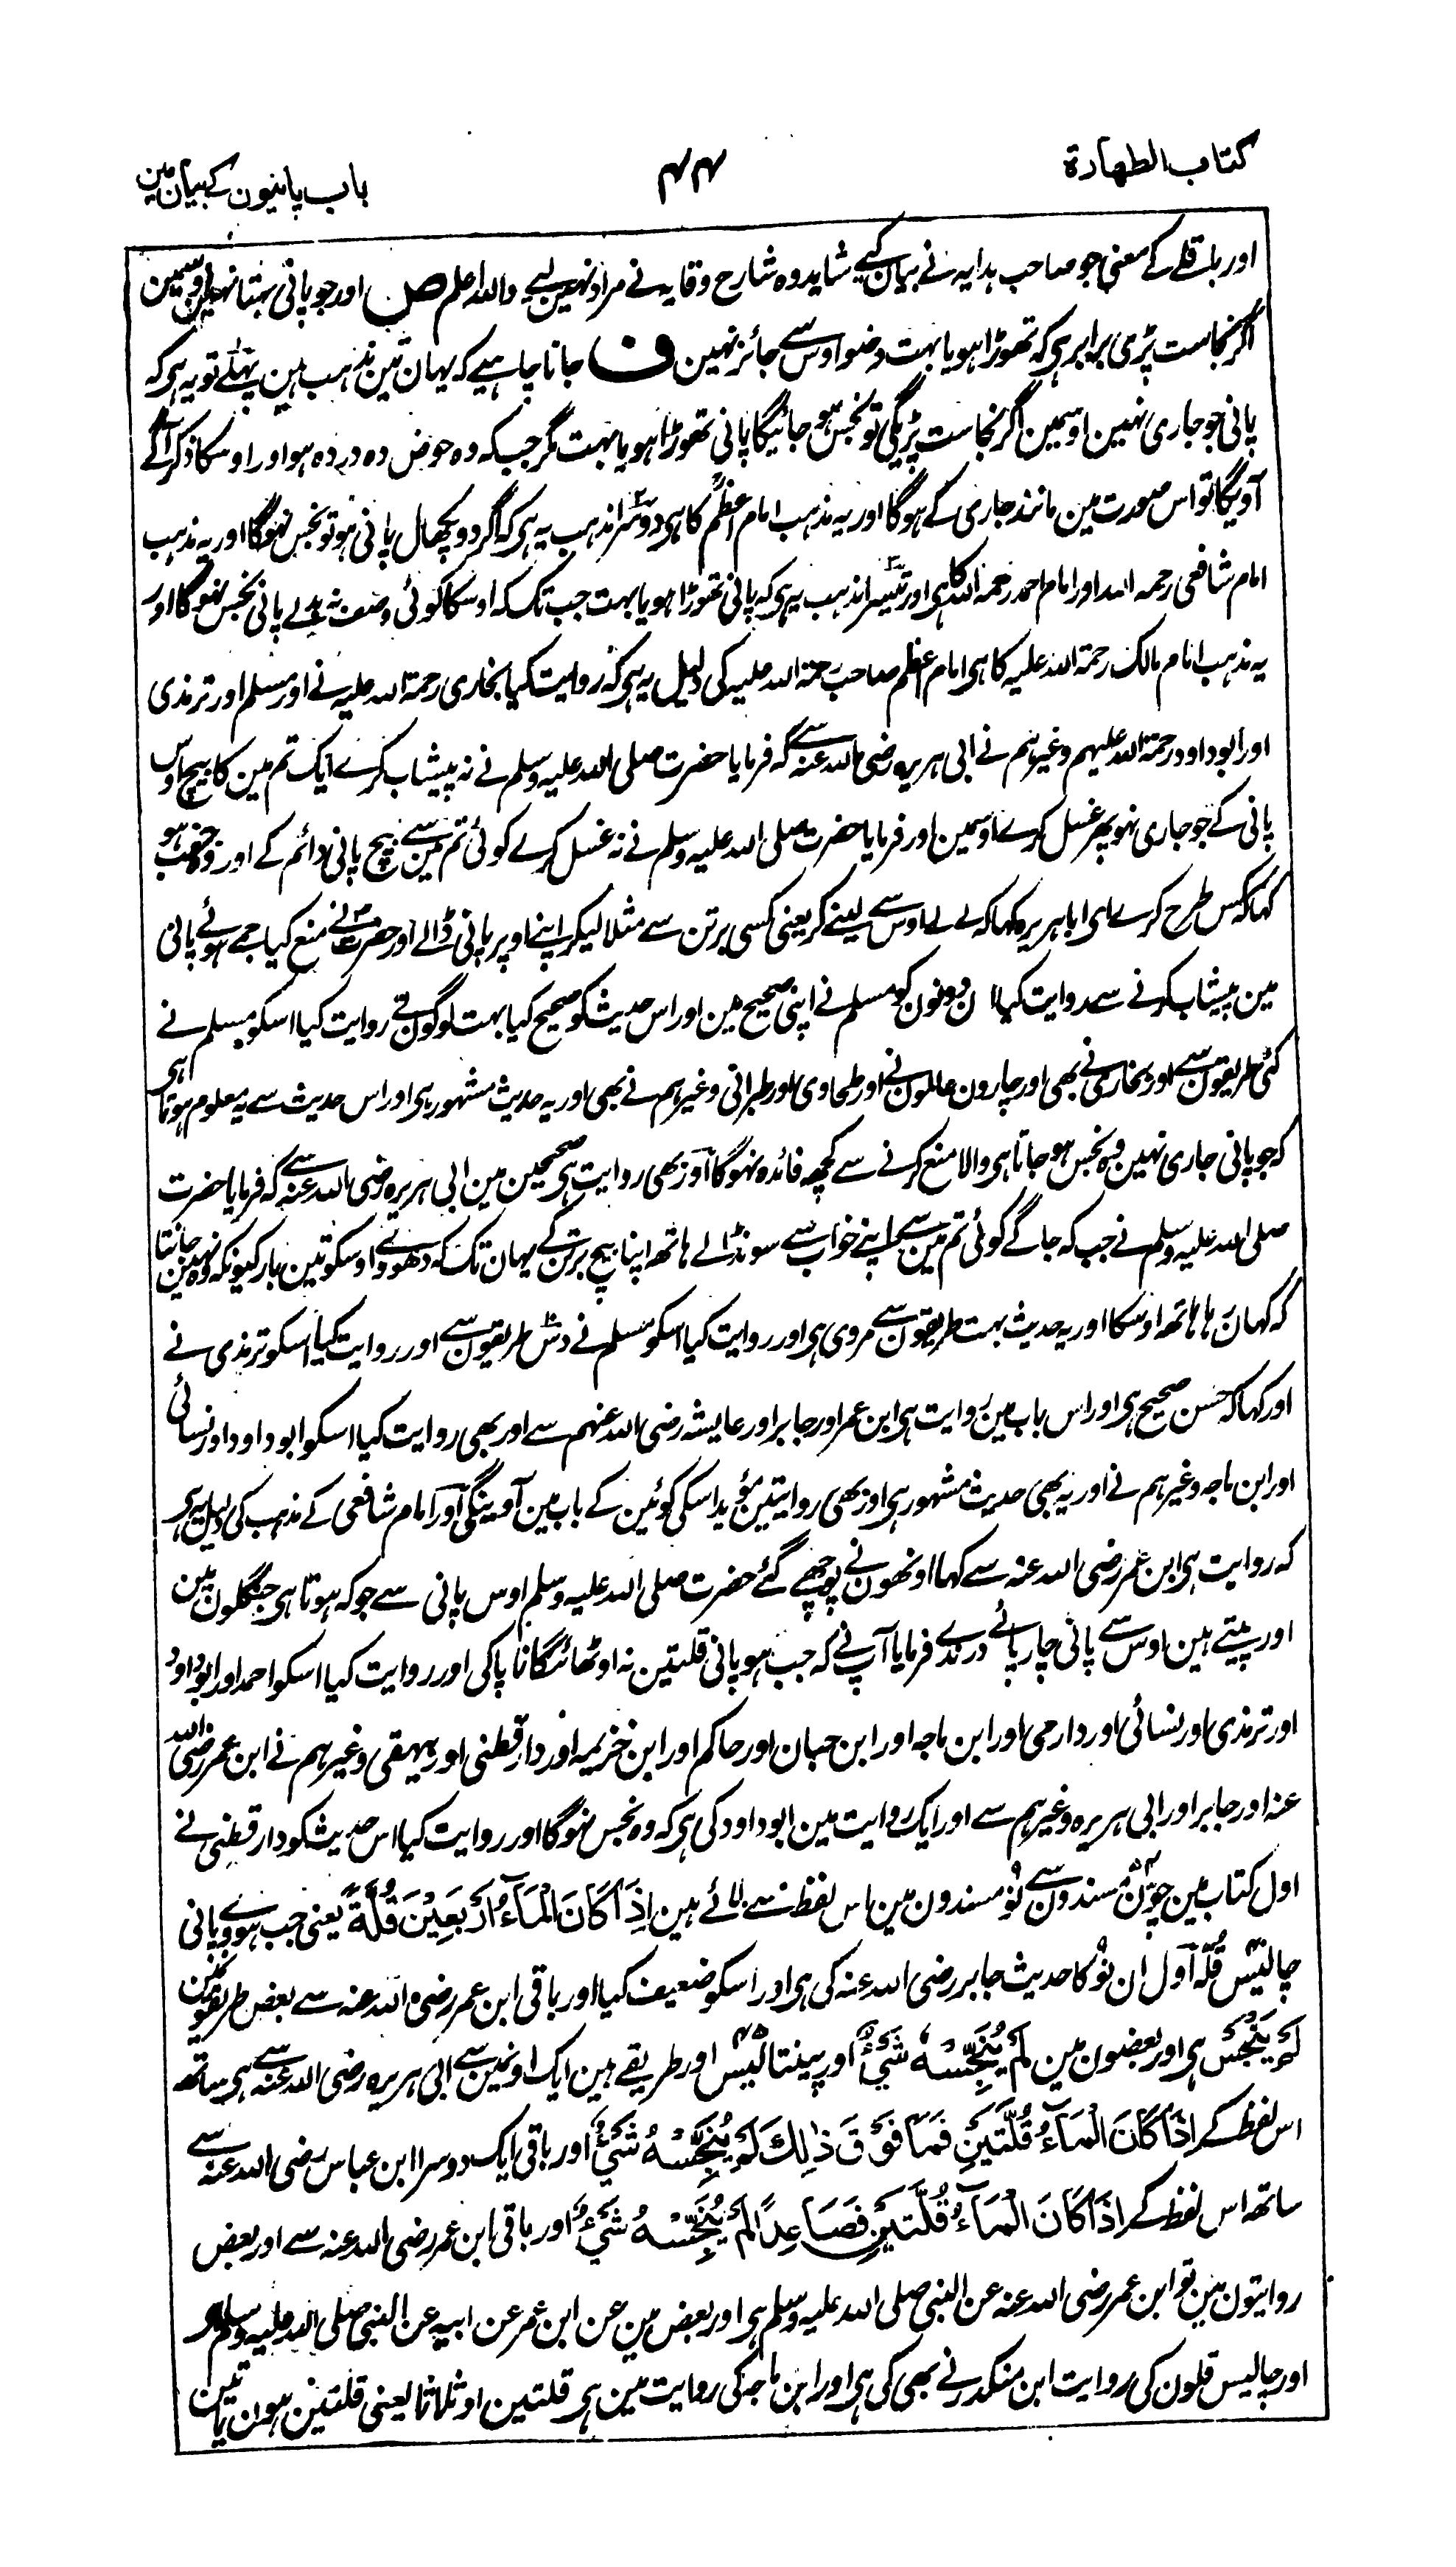 کتاب الطهارة
۴۴
باب پانیون کے بیان مین
اور بلکے قلے کے معنی جو صاحب ہدایہ نے بیان کیے شاید وہ شارح وقایہ نے مراد نہین لیے واللہ اعلم ص اور جو پانی بہتا نہین اوسمین
اگر نجاست پڑی برابر ہی کہ تھوڑا ہو یا بہت وضو اوس سے جائز نہین ف جانا چاہیے کہ یہان تین مذہب ہین پہلے تو یہ ہی کہ
پانی جو جاری نہین اوسمین اگر نجاست پڑیگی تو نجس ہو جائیگا پانی تھوڑا ہو یا بہت مگر جب کہ وہ حوض دہ در دہ ہو اور اوسکا ذکر آگے
آویگا تو اس صورت مین مانند جاری کے ہوگا اور یہ مذہب امام اعظم کا ہی دوسرا مذہب یہ ہی کہ اگر دو پکھال پانی ہو تو نجس نہوگا اور یہ مذہب
امام شافعی رحمہ اللہ اور امام احمد رحمہ اللہ کا ہی اور تیسرا مذہب یہ ہی کہ پانی تھوڑا ہو یا بہت جب تک کہ اوسکا کوئی وصف نہ بدلے پانی نجس نہوگا اور
یہ مذہب امام مالک رحمۃ اللہ علیہ کا ہی امام اعظم صاحب رحمۃ اللہ علیہ کی دلیل یہ ہی کہ روایت کیا بخاری رحمۃ اللہ علیہ نے اور مسلم اور ترمذی
اور ابو داود رحمۃ اللہ علیہم وغیرہم نے ابی ہریرہ رضی اللہ عنہ سے کہ فرمایا حضرت صلی اللہ علیہ وسلم نے نہ پیشاب کرے ایک تم مین کا بیچ اوس
پانی کے جو جاری نہو پھر غسل کرے اوسمین اور فرمایا حضرت صلی اللہ علیہ وسلم نے نہ غسل کرے کوئی تم مین سے بیچ پانی دائم کے اور وہ جنب ہو
کہا کہ کس طرح کرے ای ابا ہریرہ کہا کہ لے لے اوس سے لینے کر یعنی کسی برتن سے مثلا لیکر اپنے اوپر پانی ڈالے اور حضرت نے منع کیا جمے ہوئے پانی
مین پیشاب کرنے سے روایت کیا ان دونون کو مسلم نے اپنی صحیح مین اور اس حدیث کو صحیح کیا بہت لوگون نے روایت کیا اسکو مسلم نے
کئی طریقون سے اور بخاری نے بھی اور چارون عالمون نے اور طحاوی اور طبرانی وغیرہم نے بھی اور یہ حدیث مشہور ہی اور اس حدیث سے یہ معلوم ہوتا ہی
کہ جو پانی جاری نہین وہ نجس ہو جاتا ہی والا منع کرنے سے کچھ فائدہ نہوگا اور بھی روایت ہی صحیحین مین ابی ہریرہ رضی اللہ عنہ سے کہ فرمایا حضرت
صلی اللہ علیہ وسلم نے جب کہ جاگے کوئی تم مین سے اپنے خواب سے سو نہ ڈالے ہاتھ اپنا بیچ برتن کے یہان تک کہ دھووے اوسکو تین بار کیونکہ وہ نہین جانتا
کہ کہان رہا ہاتھ اوسکا اور یہ حدیث بہت طریقون سے مروی ہی اور روایت کیا اسکو مسلم نے دس طریقون سے اور روایت کیا اسکو ترمذی نے
اور کہا کہ حسن صحیح ہی اور اس باب مین روایت ہی ابن عمر اور جابر اور عایشہ رضی اللہ عنہم سے اور بھی روایت کیا اسکو ابو داود اور نسائی
اور ابن ماجہ وغیرہم نے اور یہ بھی حدیث مشہور ہی اور بھی روایتین مؤید اسکی کوئین کے باب مین آوینگی اور امام شافعی کے مذہب کی دلیل یہ ہی
کہ روایت ہی ابن عمر رضی اللہ عنہ سے کہا اونھون نے پوچھے گئے حضرت صلی اللہ علیہ وسلم اوس پانی سے جو کہ ہوتا ہی جنگلون مین
اور پیتے ہین اوس سے پانی چارپائے درندے فرمایا آپ نے کہ جب ہو پانی قلتین نہ اوٹھائیگا ناپاکی اور روایت کیا اسکو احمد اور ابو داود
اور ترمذی اور نسائی اور دارمی اور ابن ماجہ اور ابن حبان اور حاکم اور ابن خزیمہ اور دارقطنی اور بیہقی وغیرہم نے ابن عمر رضی اللہ
عنہ اور جابر اور ابی ہریرہ وغیرہم سے اور ایک روایت مین ابو داود کی ہی کہ وہ نجس نہوگا اور روایت کیا اس حدیث کو دارقطنی نے
اول کتاب مین چون مسندون سے نو مسندون مین اس لفظ سے لائے ہین اِذَا کَانَ الْمَآءُ اَرْبَعِیْنَ قُلَّةً یعنی جب ہووے پانی
چالیس قلہ اول ان نو کا حدیث جابر رضی اللہ عنہ کی ہی اور اسکو ضعیف کیا اور باقی ابن عمر رضی اللہ عنہ سے بعض طریقون مین
لَمْ یَنْجُسْ ہی اور بعضون مین لَمْ یُنَجِّسْهُ شَیْءٌ اور پینتالیس اور طریقے ہین ایک اونمین سے ابی ہریرہ رضی اللہ عنہ سے ہی ساتھ
اس لفظ کے اِذَا کَانَ الْمَآءُ قُلَّتَیْنِ فَمَا فَوْقَ ذٰلِكَ لَمْ یُنَجِّسْهُ شَیْءٌ اور باقی ایک دوسرا ابن عباس رضی اللہ عنہ سے
ساتھ اس لفظ کے اِذَا کَانَ الْمَآءُ قُلَّتَیْنِ فَصَاعِدًا لَمْ یُنَجِّسْهُ شَیْءٌ اور باقی ابن عمر رضی اللہ عنہ سے اور بعض
روایتون مین تو ابن عمر رضی اللہ عنہ عن النبی صلی اللہ علیہ وسلم ہی اور بعض مین عن ابن عمر عن ابیہ عن النبی صلی اللہ علیہ وسلم
اور چالیس قلون کی روایت ابن منکدر نے بھی کی ہی اور ابن ماجہ کی روایت مین ہی قلتین او ثلاثا یعنی قلتین ہون یا تین